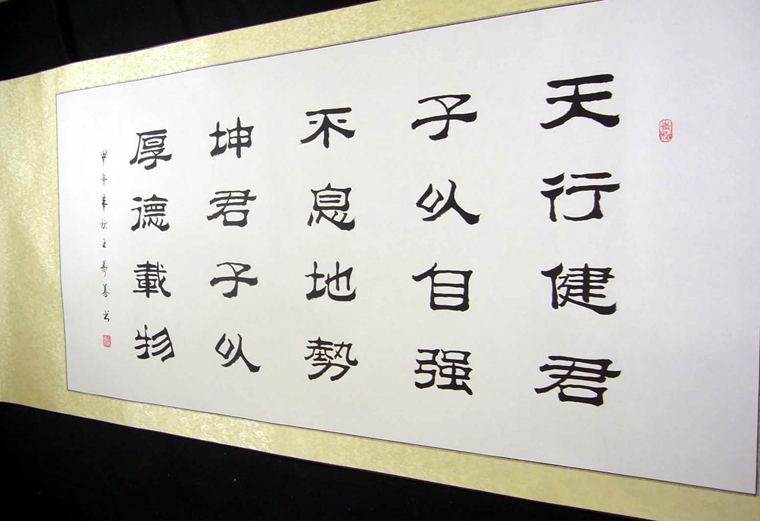 天行健君
子以自强
不息地勢
坤君子以
厚德載物
甲午年秋王壽善书